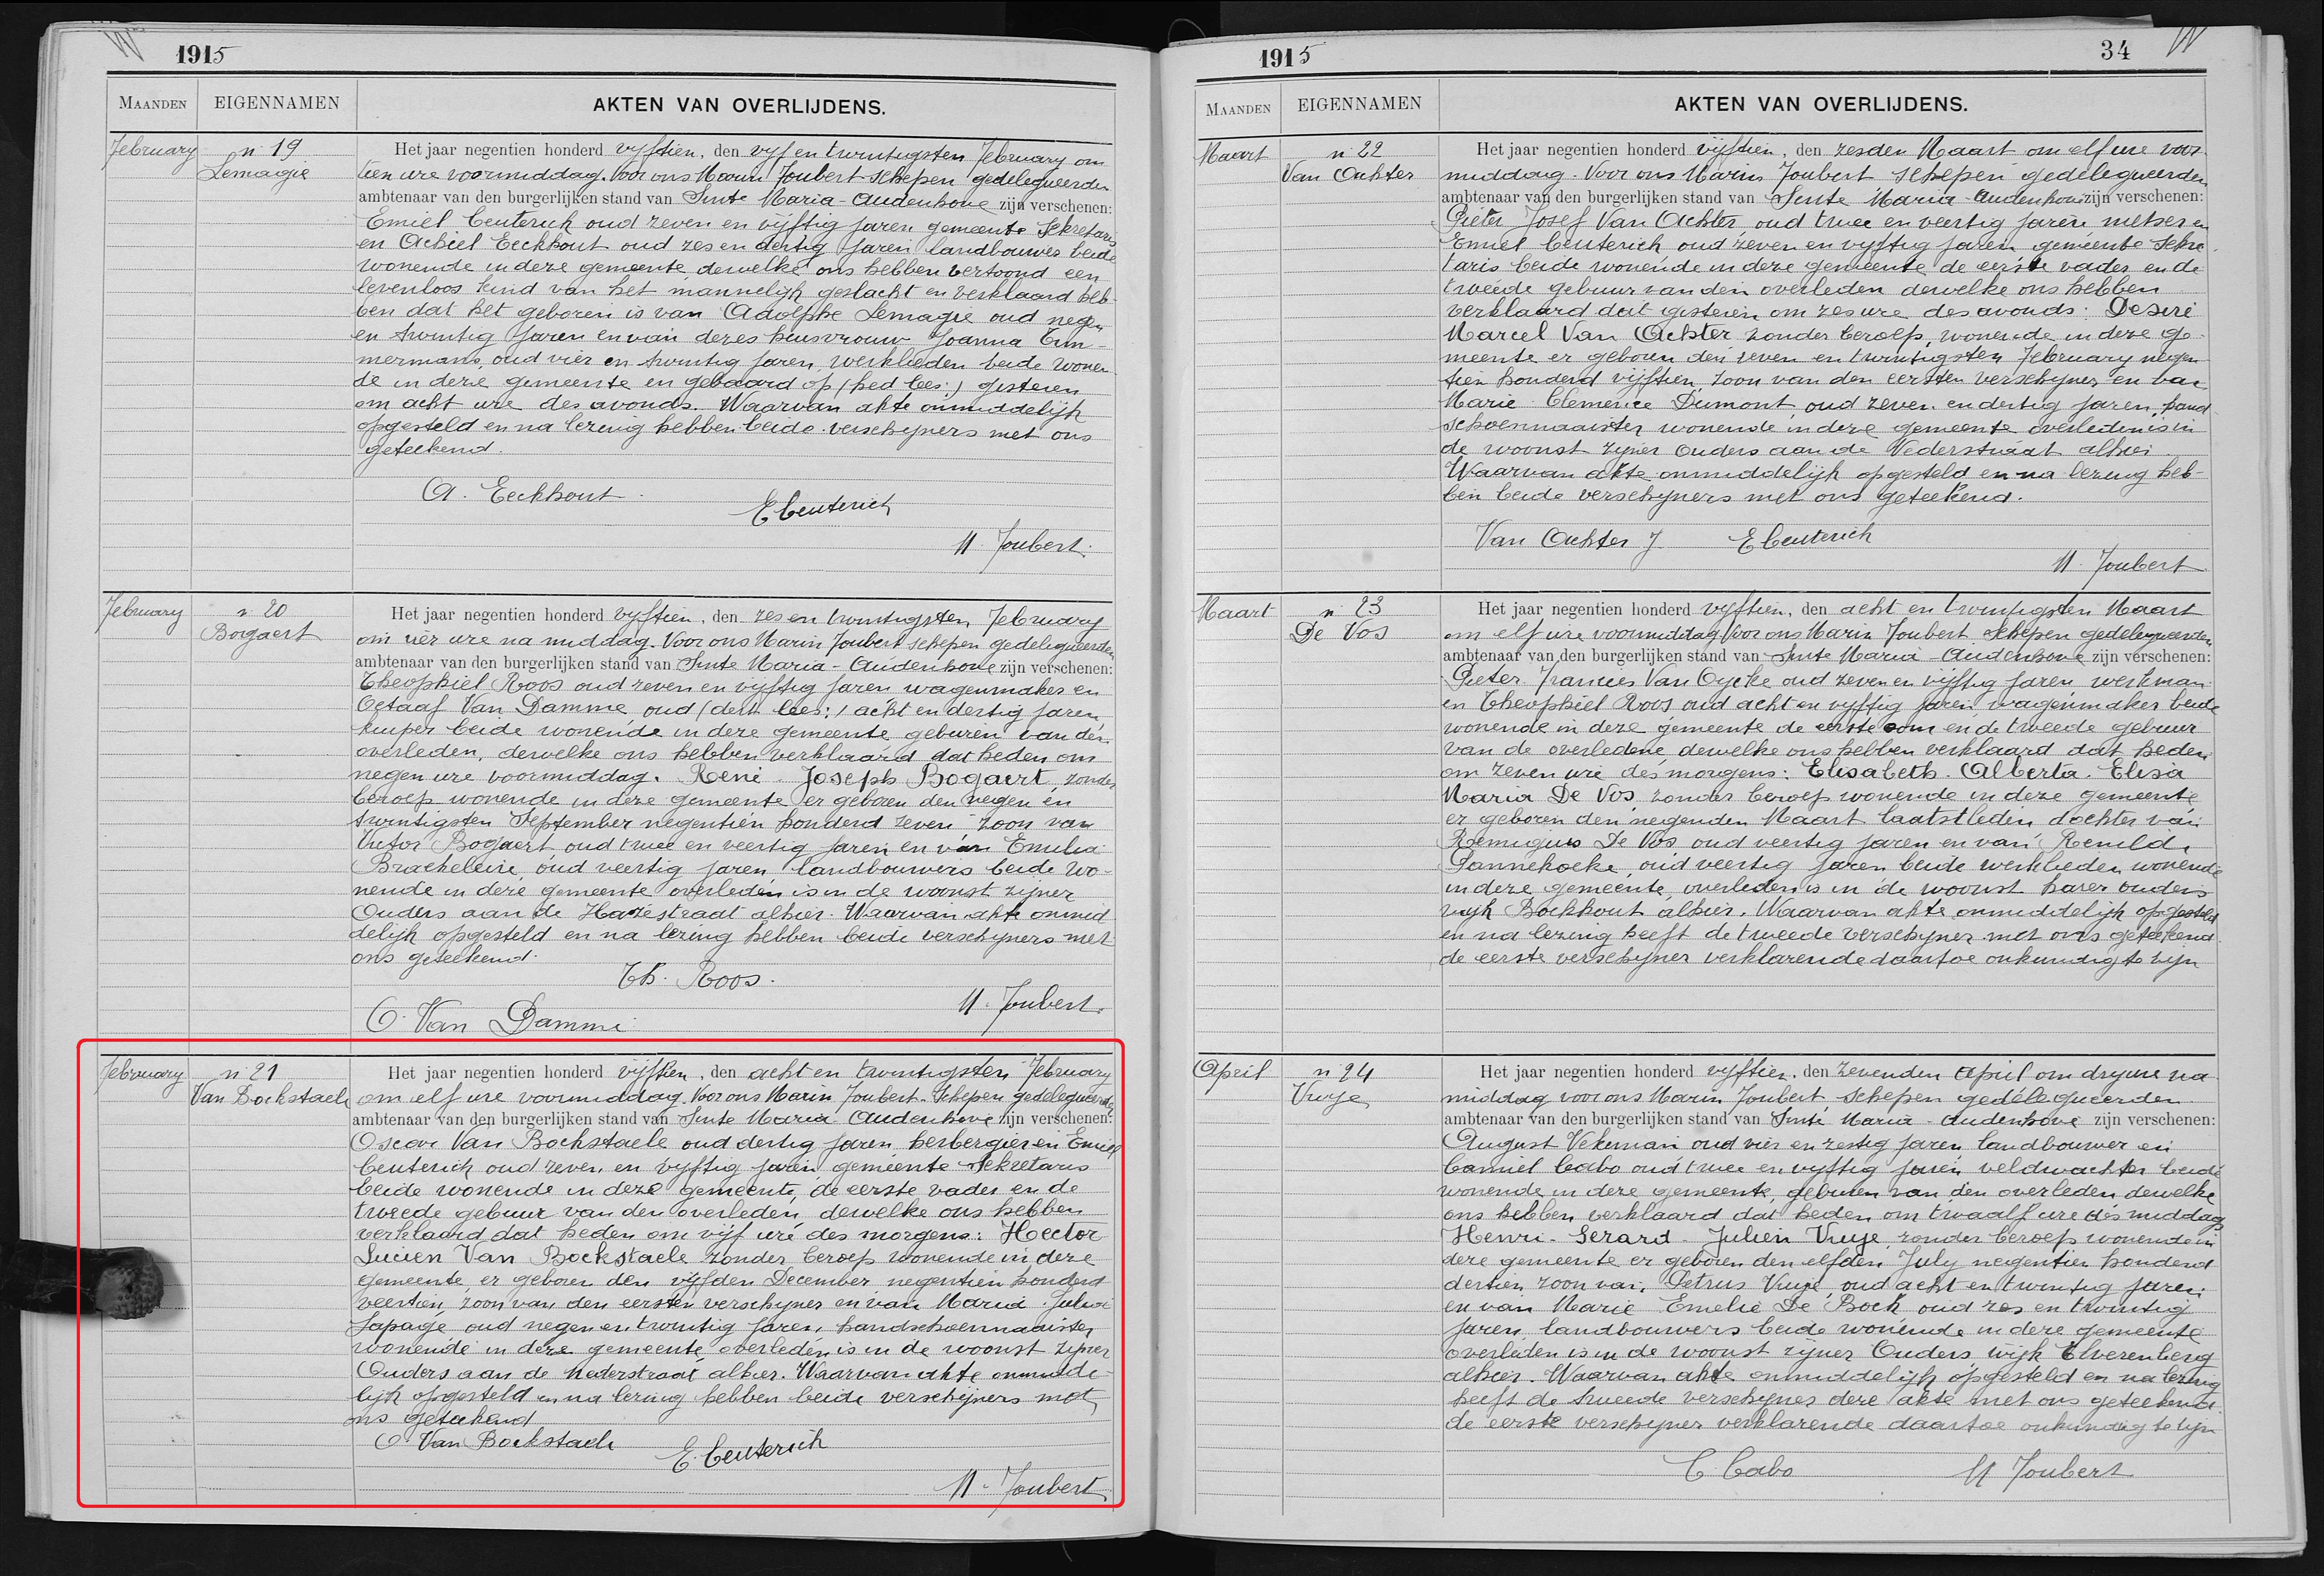 1915
MAANDEN EIGENNAMEN AKTEN VAN OVERLIJDENS.
February n. 19
Lemagie
Het jaar negentien honderd vyftien, den vyf en twintigsten February om
tien ure voormiddag. Voor ons Marin Joubert schepen gedelegueerden
ambtenaar van den burgerlijken stand van Sinte Maria-Audenhove zijn verschenen:
Emiel Ceuterick oud zeven en vijftig jaren gemeente Sekretaris
en Achiel Eeckhout oud zes en dertig jaren landbouwer beide
wonende in deze gemeente dewelke ons hebben vertoond een
levenloos kind van het mannelijk geslacht en verklaard heb-
ben dat het geboren is van Adolphe Lemagie oud negen
en twintig jaren en van deze's huisvrouw Joanna Tim-
mermans, oud vier en twintig jaren, werklieden beide wonen-
de in deze gemeente en gebaard op (hed lees:) gisteren
om acht ure des avonds. Waarvan akte onmiddelijk
opgesteld en na lezing hebben beide verschijners met ons
geteekend.
A. Eeckhout
E Ceuterick
M. Joubert.
February n. 20
Bogaert
Het jaar negentien honderd vyftien, den zes en twintigsten February
om vier ure na middag. Voor ons Marin Joubert schepen gedelegueerden
ambtenaar van den burgerlijken stand van Sinte Maria-Audenhove zijn verschenen:
Theophiel Roos oud zeven en vijftig jaren wagenmaker en
Octaaf Van Damme oud (dert lees:) acht en dertig jaren
kuiper beide wonende in deze gemeente geburen van den
overleden, dewelke ons hebben verklaard dat heden om
negen ure voormiddag. René Joseph Bogaert, zonder
beroep wonende in deze gemeente er geboren den negen en
twintigsten September negentien honderd zeven, zoon van
Victor Bogaert oud twee en veertig jaren en van Emilia
Bracheleire, oud veertig jaren landbouwers beide wo-
nende in deze gemeente overleden is in de woonst zijner
Ouders aan de Hazestraat alhier. Waarvan akte onmid
delijk opgesteld en na lezing hebben beide verschijners met
ons geteekend.
Th. Roos.
M. Joubert.
O. Van Damme
February n. 21
Van Bockstaele
Het jaar negentien honderd vijftien, den acht en twintigsten February
om elf ure voormiddag. Voor ons Marin Joubert Schepen gedelegueerden
ambtenaar van den burgerlijken stand van Sinte Maria Audenhove zijn verschenen:
Oscar Van Bockstaele oud dertig jaren herbergier en Emiel
Ceuterick oud zeven en vijftig jaren gemeente Sekretaris
beide wonende in deze gemeente, de eerste vader en de
tweede gebuur van den overleden, dewelke ons hebben
verklaard dat heden om vijf ure des morgens: Hector
Lucien Van Bockstaele zonder beroep wonende in deze
gemeente, er geboren den vijfden December negentien honderd
veertien, zoon van den eersten verschijner en van Maria Julia
Sapage oud negen en twintig jaren, handschoenmaaister
wonende in deze gemeente overleden is in de woonst zijner
Ouders aan de Nederstraat alhier. Waarvan akte onmidde-
lijk opgesteld en na lezing hebben beide verschijners met
ons geteekend
O. Van Bockstaele
E. Ceuterick
M. Joubert
1915 34
MAANDEN EIGENNAMEN AKTEN VAN OVERLIJDENS.
Maart n. 22
Van Achter
Het jaar negentien honderd vijftien, den zesden Maart om elf ure voor-
middag. Voor ons Marin Joubert schepen gedelegueerden
ambtenaar van den burgerlijken stand van Sinte Maria-Audenhove zijn verschenen:
Pieter Josef Van Achter, oud twee en veertig jaren metser en
Emiel Ceuterick oud zeven en vyftig jaren gemeente Sekre-
taris beide wonende in deze gemeente de eerste vader en de
tweede gebuur van den overleden dewelke ons hebben
verklaard dat gisteren om zes ure des avonds: Desiré
Marcel Van Achter zonder beroep, wonende in deze ge-
meente er geboren den zeven en twintigsten February negen
tien honderd vijftien, zoon van den eersten verschijner en van
Marie Clemence Dumont, oud zeven en dertig jaren, hand
schoenmaaister wonende in deze gemeente overleden is in
de woonst zijner Ouders aan de Nederstraat alhier.
Waarvan akte onmiddelijk opgesteld en na lezing heb-
ben beide verschijners met ons geteekend.
Van Achter J
E Ceuterick
M. Joubert
Maart n. 23
De Vos
Het jaar negentien honderd vyftien, den acht en twintigsten Maart
om elf ure voormiddag Voor ons Marin Joubert schepen gedelegueerden
ambtenaar van den burgerlijken stand van Sinte Maria-Audenhove zijn verschenen:
Pieter Francies Van Oycke oud zeven en vijftig jaren werkman
en Theophiel Roos oud acht en vyftig jaren wagenmaker beide
wonende in deze gemeente de eerste oom en de tweede gebuur
van de overledene, dewelke ons hebben verklaard dat heden
om zeven ure des morgens: Elisabeth. Alberta. Elisa
Maria De Vos, zonder beroep wonende in deze gemeente
er geboren den negenden Maart laatstleden dochter van
Remigius De Vos oud veertig jaren en van Renilde
Pannekoeke, oud veertig jaren beide werklieden wonende
in deze gemeente, overleden is in de woonst harer ouders
wijk Bockhout alhier. Waarvan akte onmiddelijk opgesteld
en na lezing heeft de tweede verschijner met ons geteekend
de eerste verschijner verklarende daartoe onkundig te zijn
April n. 24
Vuye
Het jaar negentien honderd vyftien, den zevenden April om dry ure na
middag voor ons Marin Joubert schepen gedelegueerden
ambtenaar van den burgerlijken stand van Sinte Maria-Audenhove zijn verschenen:
August Vekeman oud vier en zestig jaren landbouwer en
Camiel Cabo oud twee en vyftig jaren veldwachter beide
wonende in deze gemeente, geburen van den overleden dewelke
ons hebben verklaard dat heden om twaalf ure des middags
Henri-Gerard-Julien Vuye, zonder beroep wonende in
deze gemeente er geboren den elfden July negentien honderd
dertien zoon van Petrus Vuye, oud acht en twintig jaren
en van Marie Emelie De Bock oud zes en twintig
jaren, landbouwers beide wonende in deze gemeente
overleden is in de woonst zijner Ouders, wijk Elverenberg
alhier. Waarvan akte onmiddelijk opgesteld en na lezing
heeft de tweede verschijner deze akte met ons geteekend
de eerste verschijner verklarende daartoe onkundig te zijn
C. Cabo
M Joubert